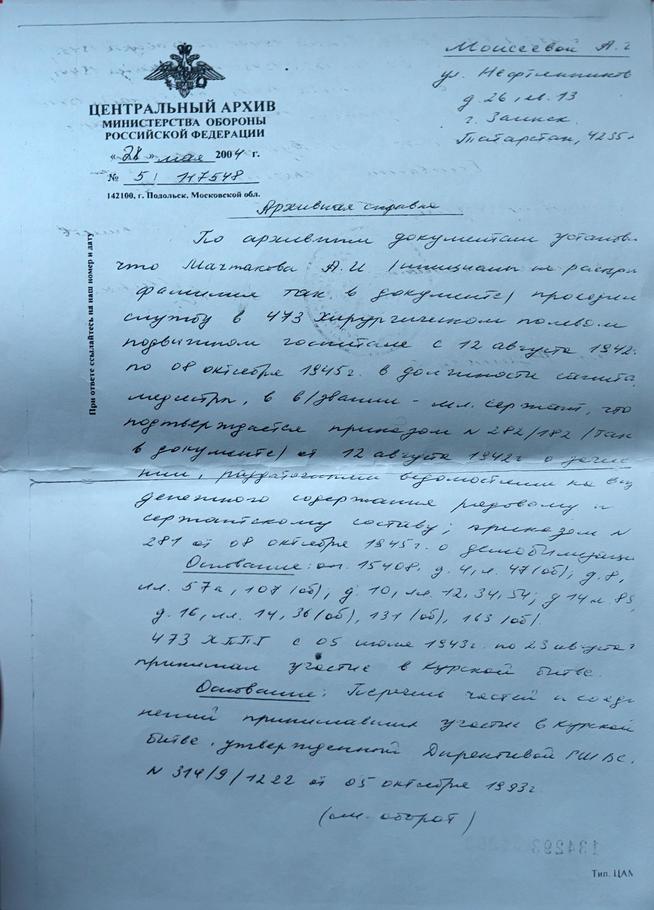 Моисеевой А.
ул. Нефтяников
д 26, кв. 13
г. Заинск
Татарстан, 4235
ЦЕНТРАЛЬНЫЙ АРХИВ
МИНИСТЕРСТВА ОБОРОНЫ
РОССИЙСКОЙ ФЕДЕРАЦИИ
«28» мая 2004 г.
№ 5/ 117548
142100, г. Подольск, Московской обл.
При ответе ссылайтесь на наш номер и дату
Архивная справка
По архивным документам установ
что Мачтакова А.И /инициалы не раскры
фамилия так в документе/ проходил
службу в 473 хирургическом полевом
подвижном госпитале с 12 августа 1942г.
по 08 октября 1945г. в должности
медсестры, в в/звании - мл. сержант, что
подтверждается приказом N 282/182 /так
в документе/ от 12 августа 1942г о зачис
нии, раздаточными ведомостями на выд
денежного содержания рядовому и
сержантскому составу; приказом N
281 от 08 октября 1945г. о демобилизаци
Основание: оп. 15408, д. 4, л. 47(об); д. 8,
лл. 57а, 107(об), д. 10, лл. 12, 34, 54; д 14 л. 85
д. 16, лл. 14, 36(об), 131(об), 163(об).
473 ХППГ с 05 июля 1943г. по 23 августа
принимал участие в Курской битве.
Основание: Перечень частей и соеди
нений принимавших участие в Курской
битве. утвержденной Директивой ГШ ВС.
N 314/9/1222 от 05 октября 1993г
(см. оборот)
Тип. ЦАМ